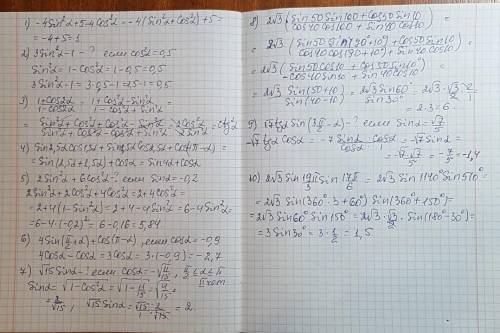 1) -4sin²α+5-4cos²α = -4(sin²α+cos²α)+5=
=-4+5=1
2) 3sin²α-1-? если cos²α=0,5
sin²α=1-cos²α=1-0,5=0,5
3sin²α-1=3·0,5-1=1,5-1=0,5
3) (1+cos2α)/(1-cos2α) = (1+cos²α-sin²α)/(1-cos²α+sin²α) =
= (sin²α+cos²α+cos²α-sin²α)/(sin²α+cos²α-cos²α+sin²α) = 2cos²α/2sin²α = ctg²α
4)
= sin(2,5α+1,5α)+cosα=sin4α+cosα
5) 2sin²α+6cos²α-? если sinα=-0,2
2sin²α+2cos²α+4cos²α=2+4cos²α=
=2+4(1-sin²α)=2+4-4sin²α=6-4sin²α=
=6-4·(-0,2)²=6-0,16=5,84
6) 4sin(π/2+α)+cos(π-α), если cosα=-0,9
4cosα-cosα=3cosα=3·(-0,9)=-2,7
7) √15 sinα-? если cosα=-√(11/15), π/2<α<π
II чет
sinα=√(1-cos²α)=√(1-11/15)=√(4/15)=
=2/√15, √15 sinα=√15·2/(1·√15)=2.
8) 2√3 (sin50 sin100+cos50 sin10)/(cos40 cos100+sin40 cos10) =
=
= 2√3 (sin50 cos10+cos50 sin10)/(-cos40 sin10+sin40 cos10) =
= 2√3 sin(50+10)/sin(40-10) = 2√3 sin60°/sin30° = 2√3·√3/2·2/1
= 2·3=6.
9) √7 tgα sin(3π/2-α)-? если sinα=√7/5
-√7 tgα cosα=-√7 sinα/cosα·cosα=-√7 sinα=
=-√7·√7/5=-7/5=-1,4
10) 2√3 sin 19π/3 sin 17π/6 = 2√3 sin1140° sin510°=
=2√3 sin(360°·3+60°) sin(360°+150°)=
=2√3 sin60° sin150°=2√3·√3/2·sin(180°-30°)=
=3sin30°=3·1/2=1,5